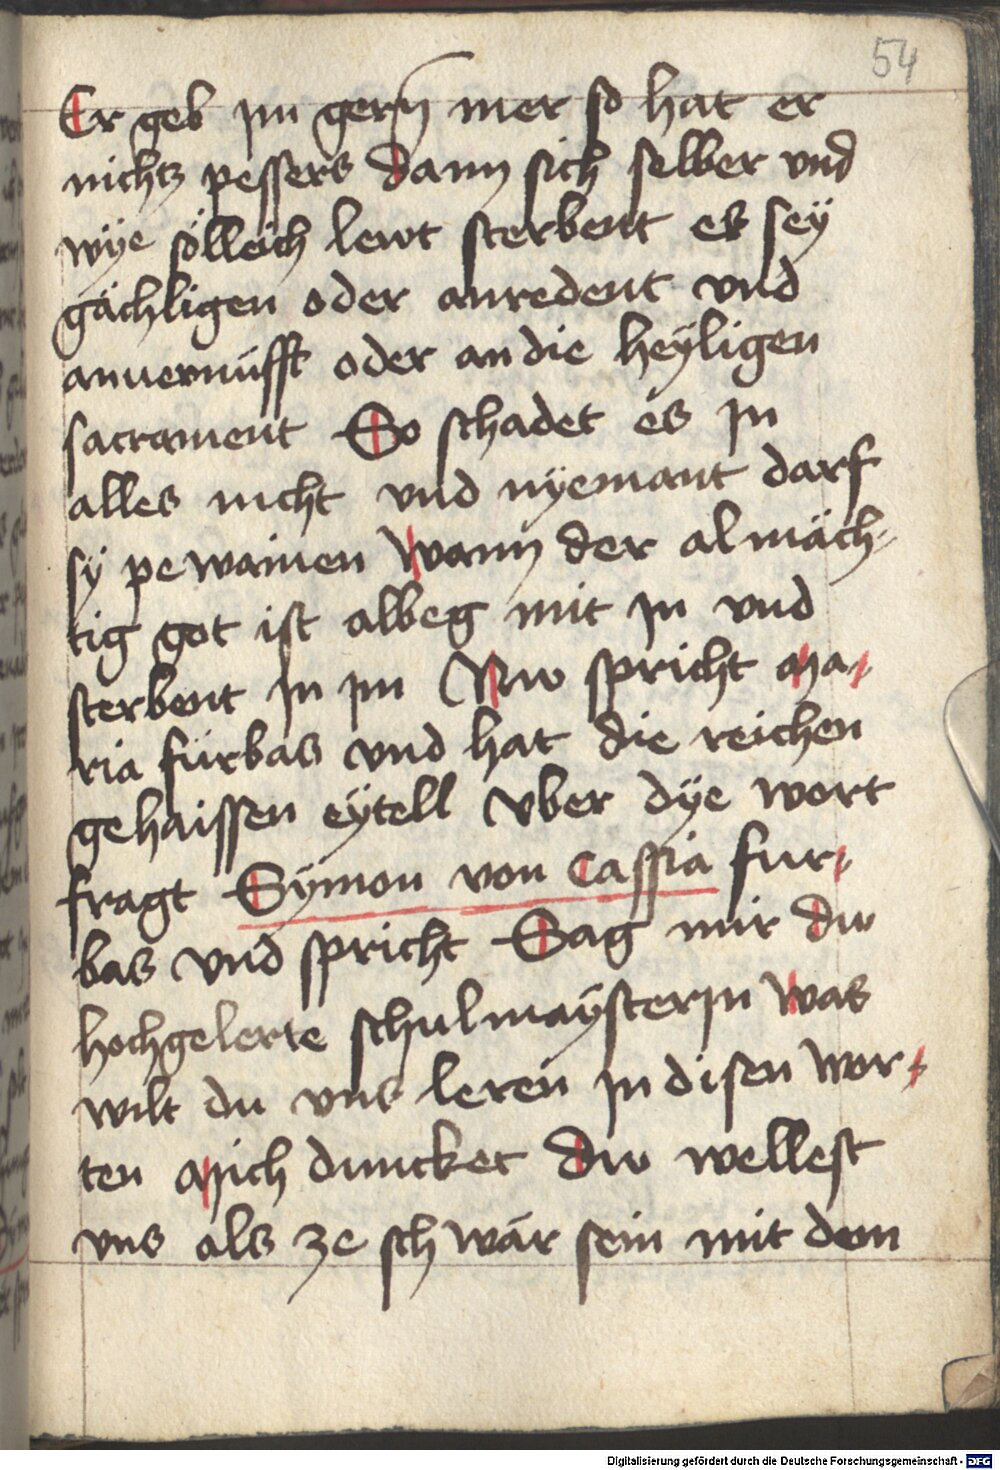 54
Er geb im gern mer so hat er
nichtz pessers dann sich selber vnd
wÿe sölleich lewt sterbent es seÿ
gächligen oder anredent vnd
anuernüfft oder an die heÿligen
sacrament So schadet es In
alles nicht vnd nÿemant darf
sÿ pewainen Wann der almäch-
tig got ist albeg mit In vnd
sterbent In im Nw spricht Ma-
ria fürbas vnd hat die reichen
gehaissen eÿtell Vber dÿe wort
fragt Sÿmon von Cassia fur-
bas vnd spricht Sag mir dw
hochgelerte schulmaÿsterin Was
wilt du vns leren In disen wor-
ten Mich duncket Dw wellest
vns als ze schwär sein mit dem
Digitalisierung gefördert durch die Deutsche Forschungsgemeinschaft - DFG